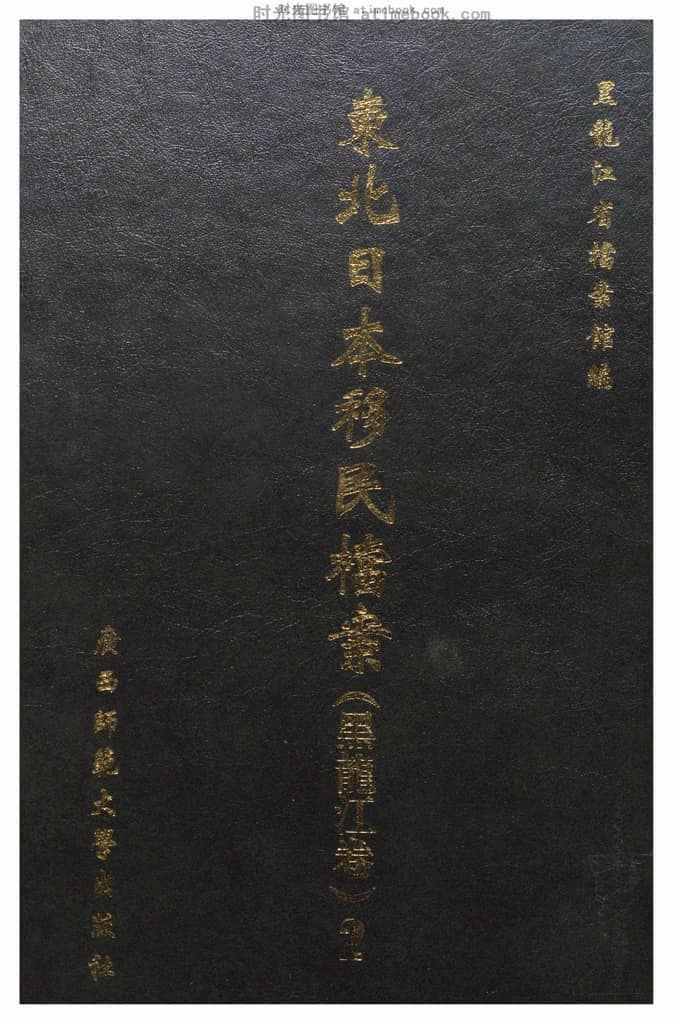 时光图书馆 atimebook.com
黑龍江省檔案館編
東北日本移民檔案(黑龍江卷)2
廣西師範大學出版社